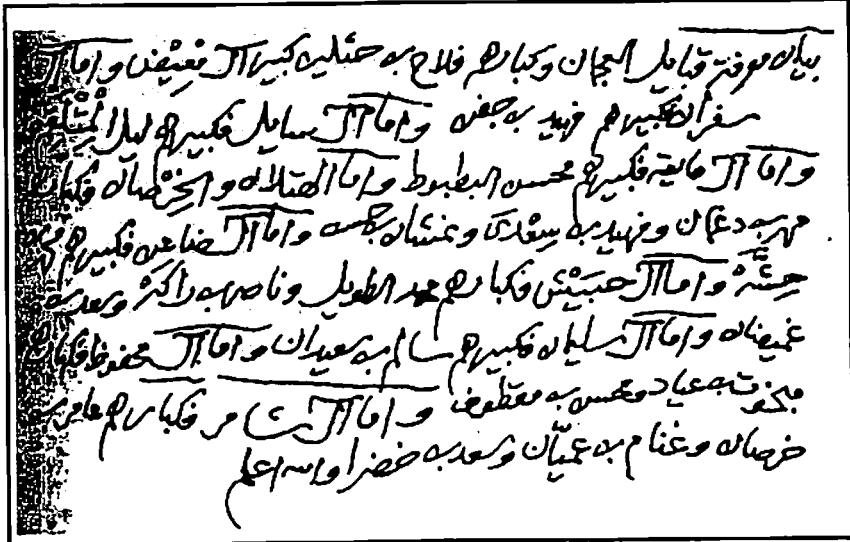 بيان معرفة قبايل العجمان وكبارهم فلاح بن حثلين كبير آل معيض واما آل
سفران فكبيرهم فهيد بن جفن واما آل سايل فكبيرهم
واما آل فكبيرهم محسن البطبوط واما الهتلان والخرصان فكبار
مهر بن دغمان وفهيد بن سعدى وغنشان بن واما آل ضاعن فكبيرهم
حشه واما آل حبيش فكبارهم مهد الطويل وناصر بن راكه وسعد بن
غميضان واما آل سليمان فكبيرهم سالم بن سعيدان واما آل محفوظ فكبار
بن عياد ومحسن بن معطوف واما آل شامر فكبارهم عامر بن
خرصان وغنام بن عميان وسعد بن خضرا والله اعلم